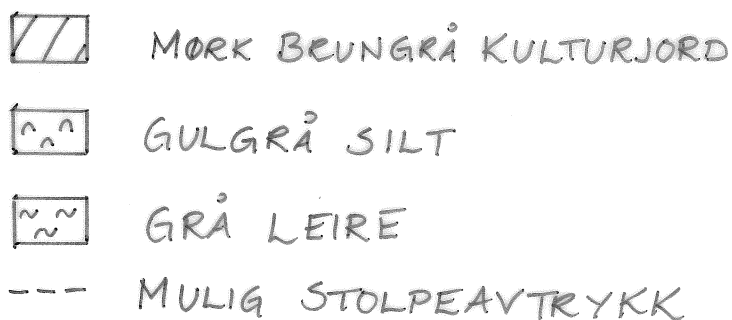 MØRK BRUNGRÅ KULTURJORD
GULGRÅ SILT
GRÅ LEIRE
MULIG STOLPEAVTRYKK